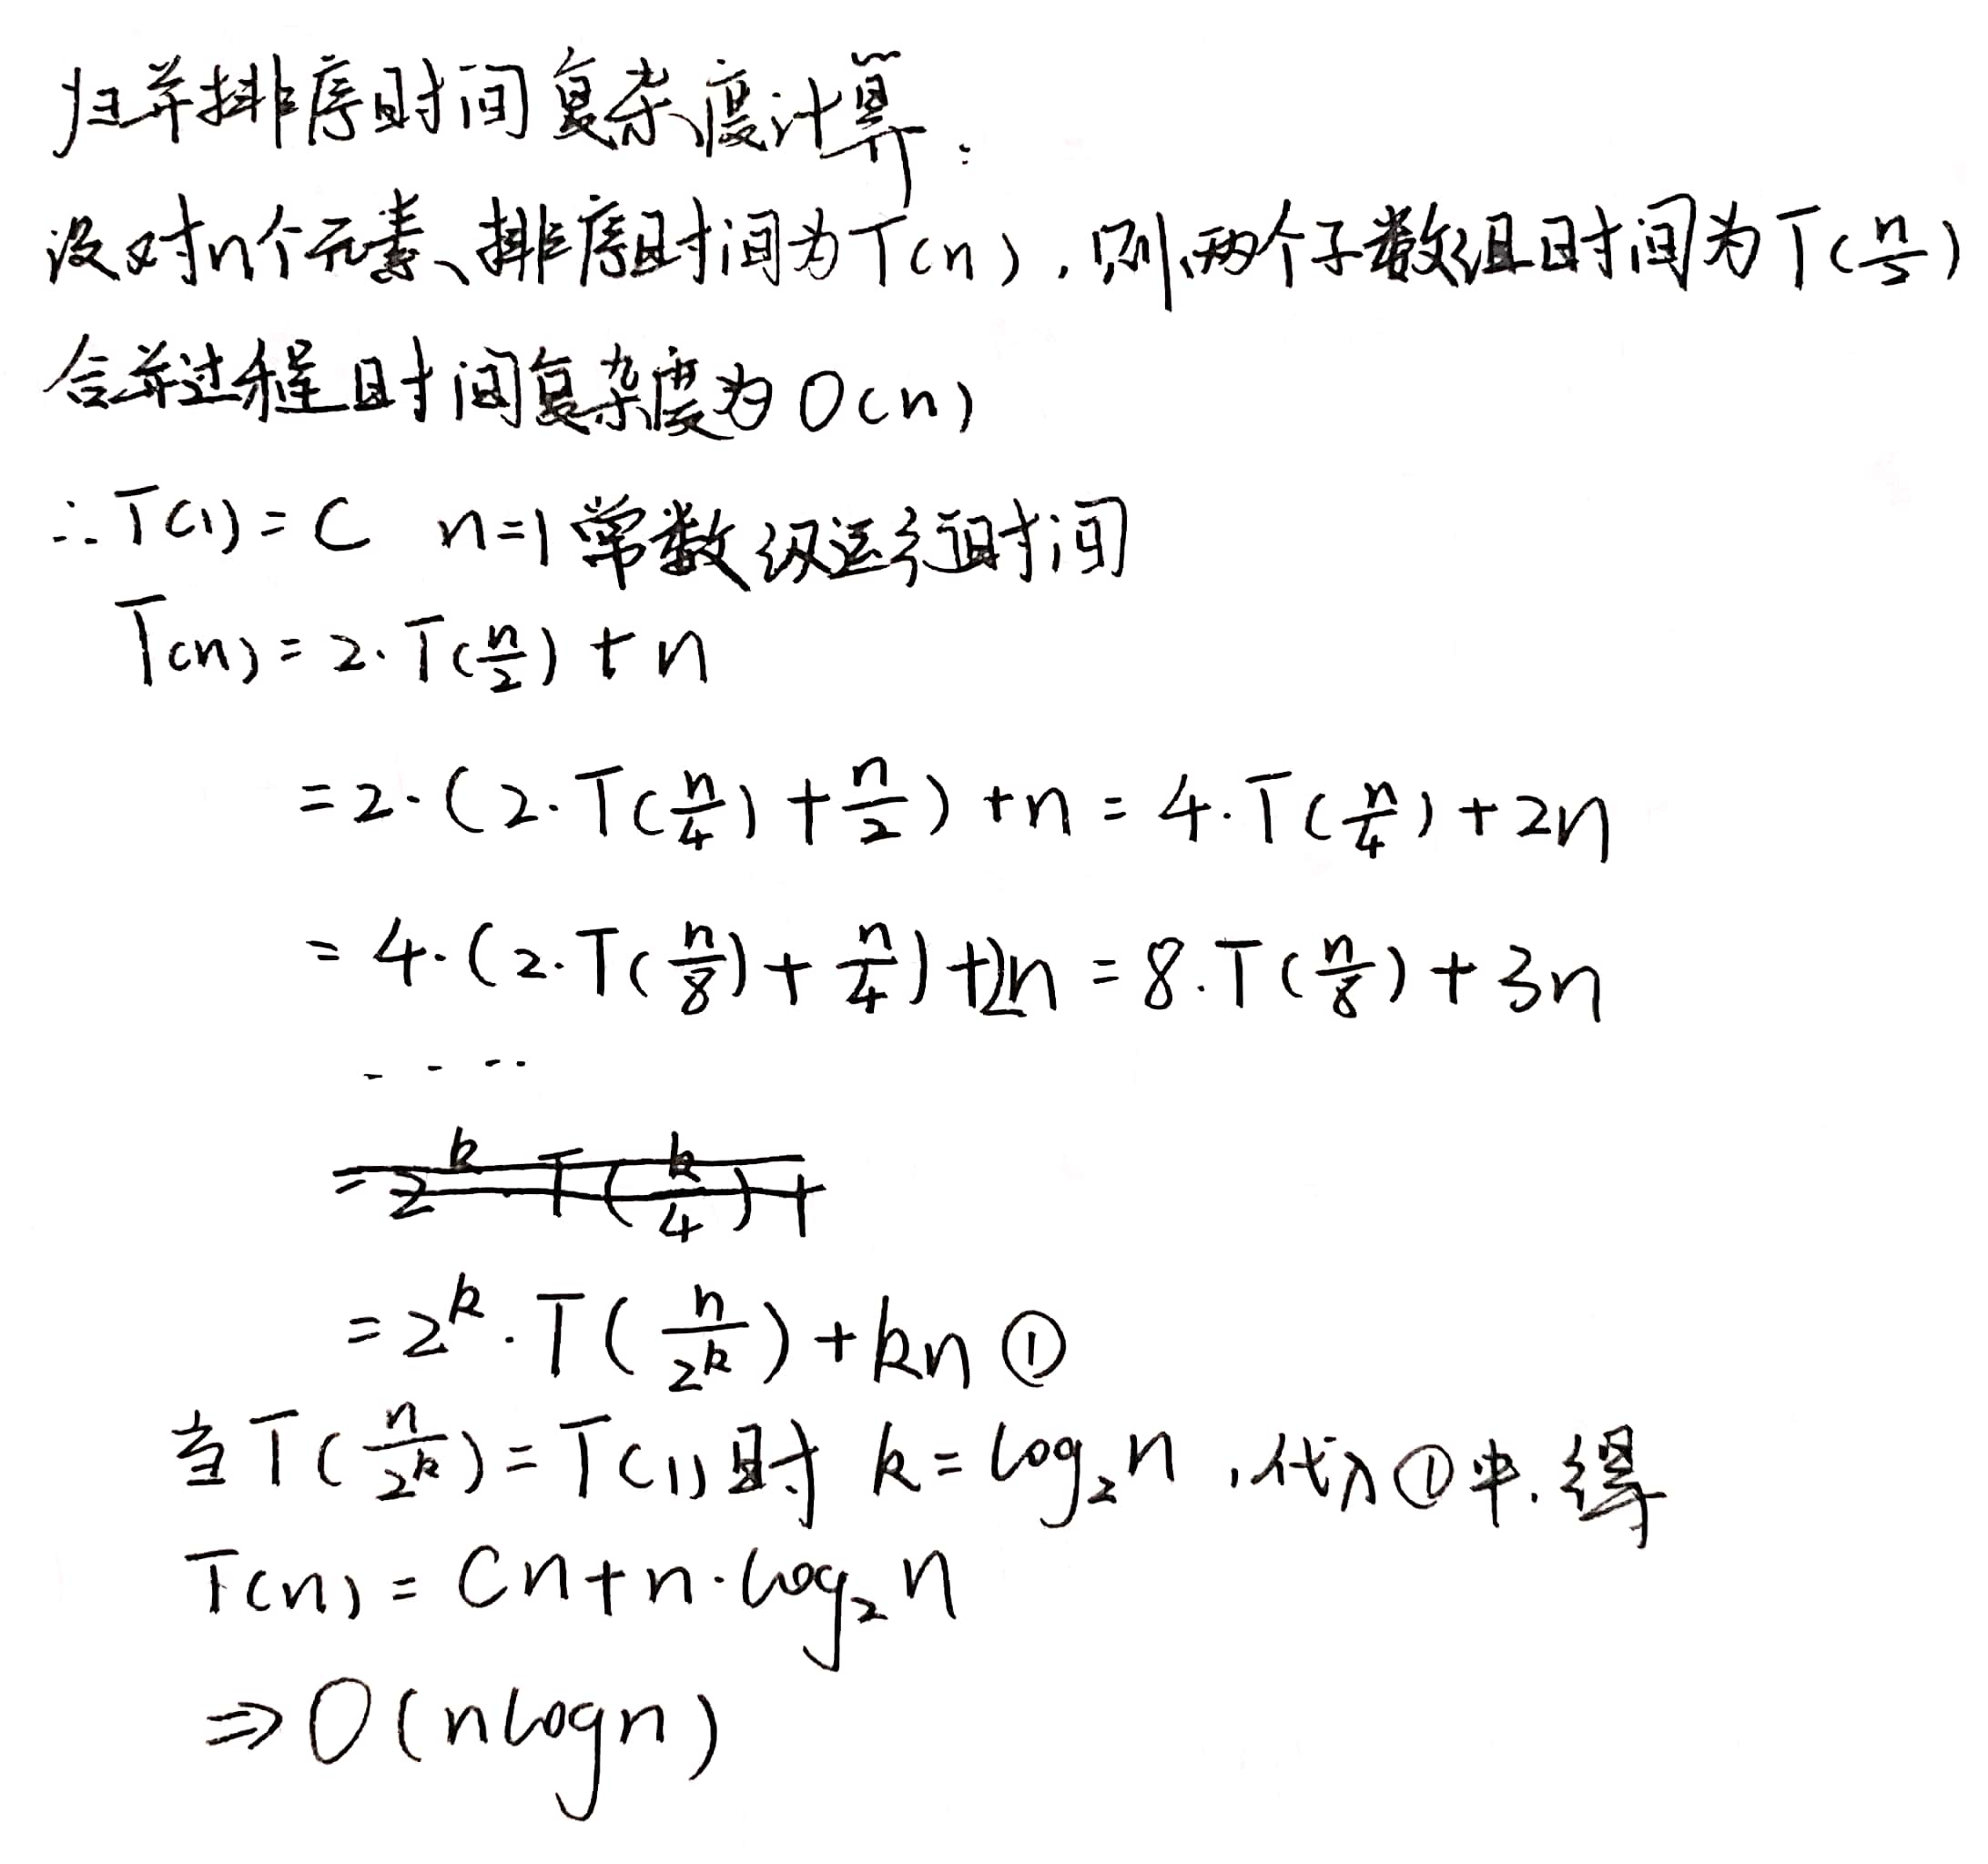 归并排序时间复杂度计算:
设对n个元素、排序时间为T(n),则两个子数组时间为T(n/2)
合并过程时间复杂度为O(n)
∴T(1)=C n=1常数级运行时间
T(n)=2·T(n/2)+n
=2·(2·T(n/4)+n/2)+n=4·T(n/4)+2n
=4·(2·T(n/8)+n/4)+2n=8·T(n/8)+3n
....
=2^k·T(k/4)+
=2^k·T(n/2^k)+kn①
当T(n/2^k)=T(1)时 k=log₂n,代入①中.得
T(n)=Cn+n·log₂n
⇒O(nlogn)